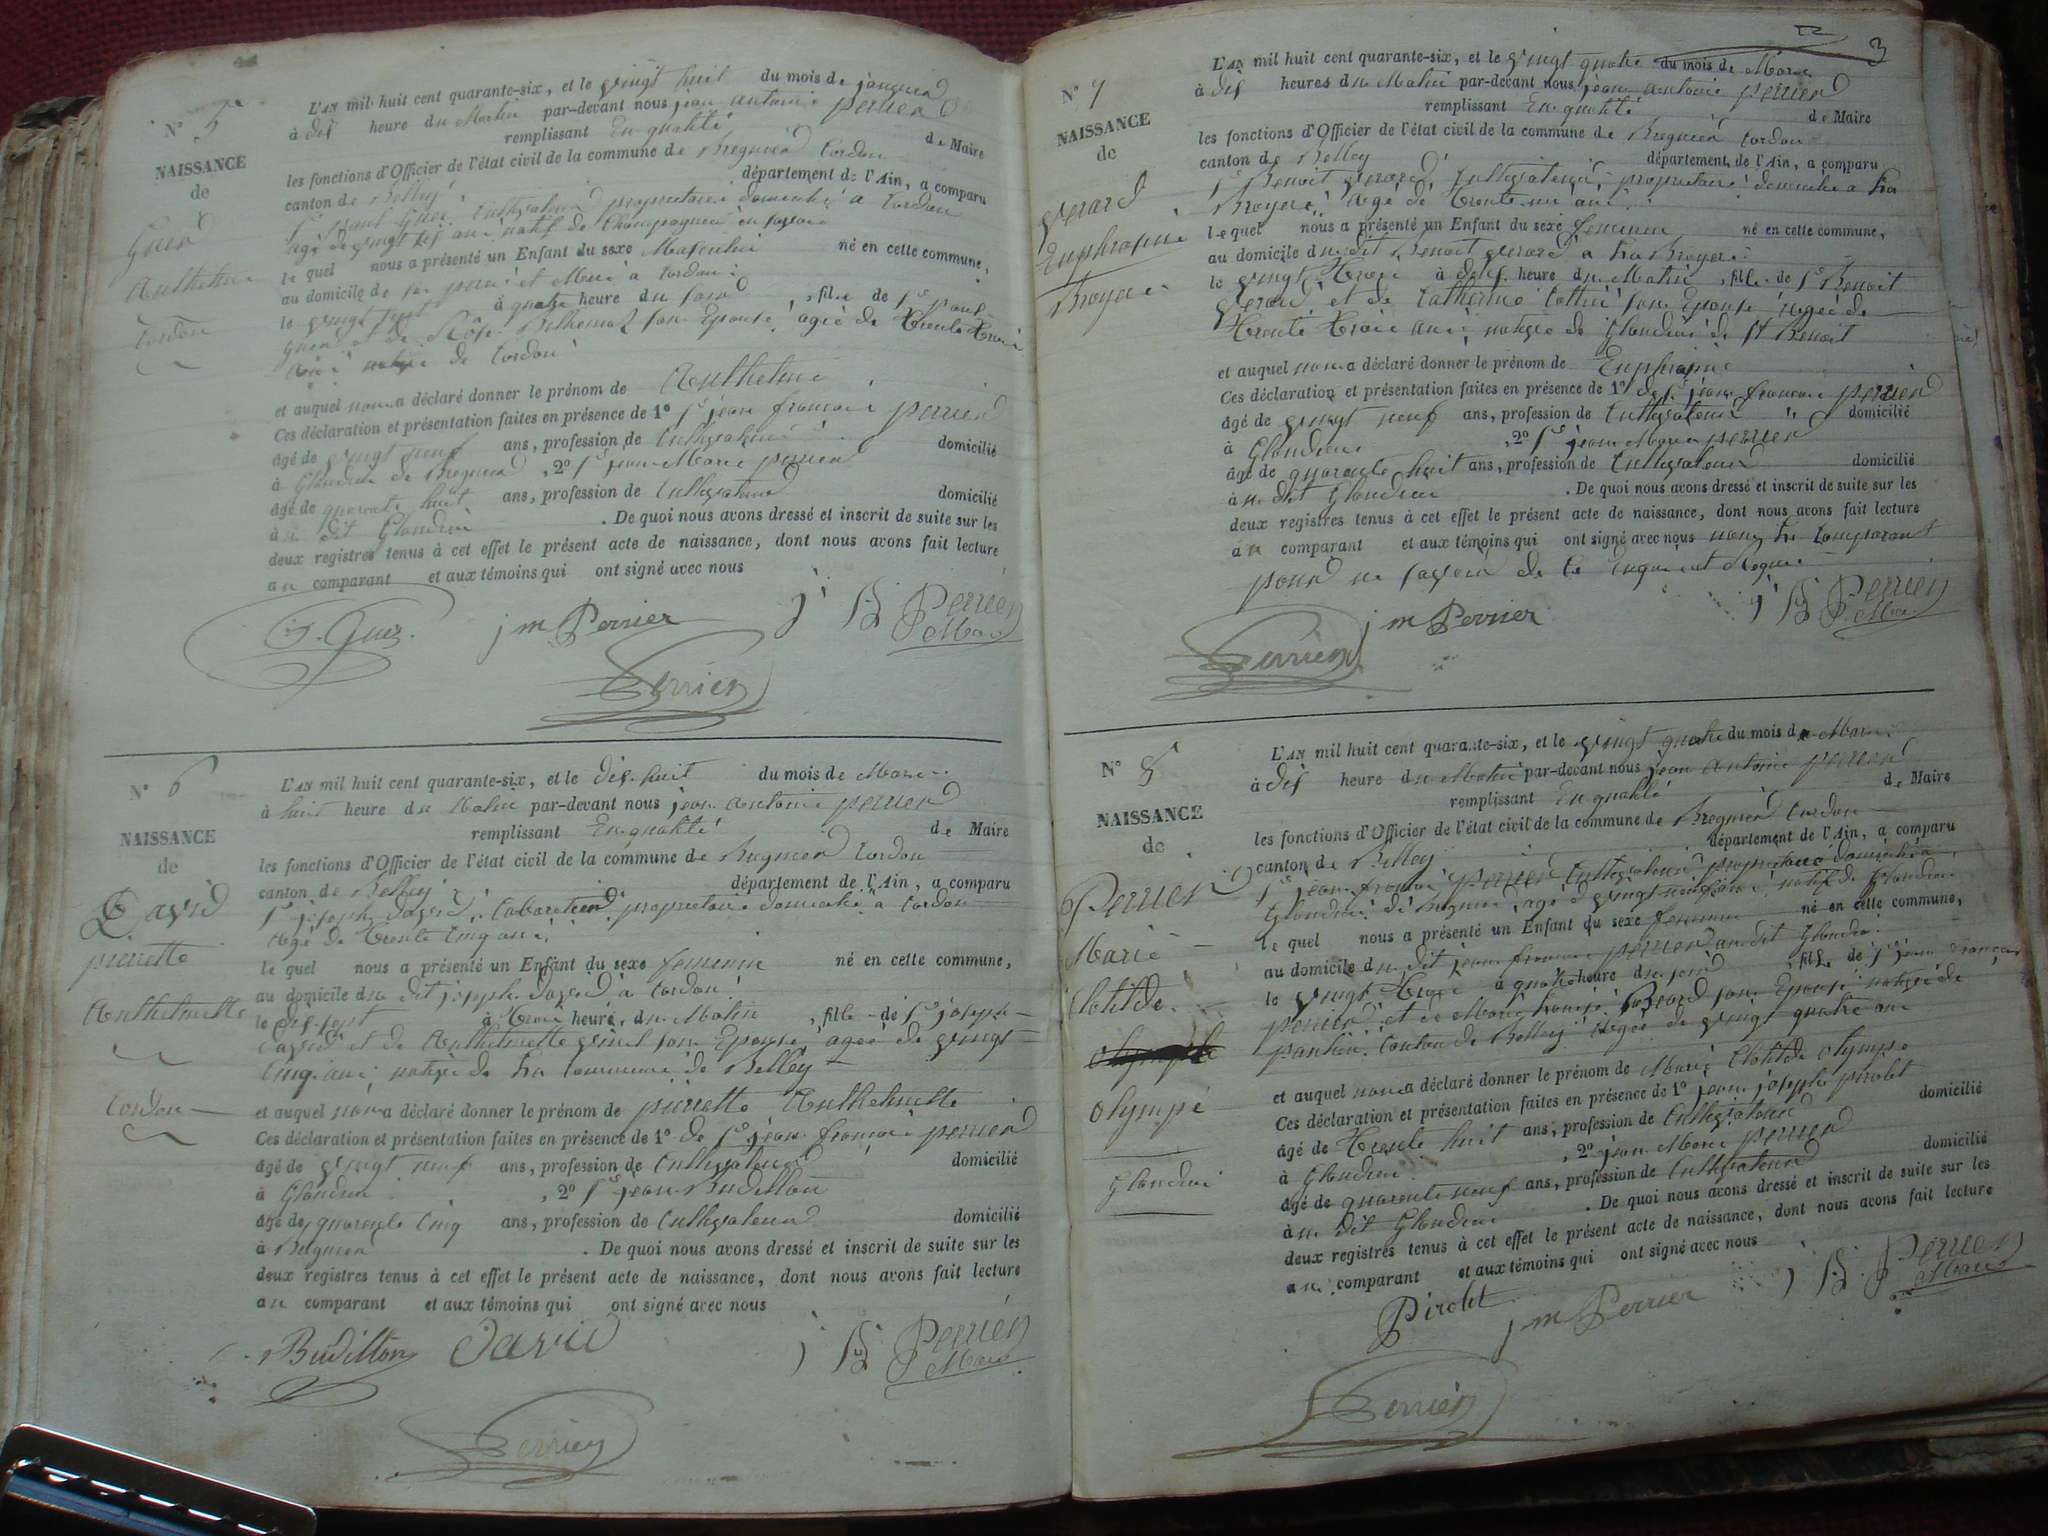 N° 5
NAISSANCE
de
Guer
Anthelme
Cordon
L'AN mil huit cent quarante-six, et le vingt huit du mois de janvier
à dix heure du Matin par-devant nous jean antoine perrier
remplissant En qualité de Maire
les fonctions d'Officier de l'état civil de la commune de Bregnier Cordon
canton de Belley département de l'Ain, a comparu
proprietaire domicilié à Cordon
natif de Champagneux en savoie
le quel nous a présenté un Enfant du sexe Masculin né en cette commune,
au domicile de ses pere et Mere à Cordon
le vingt sept à quatre heure du soir, fils de Sr paul
Guer et de son Epouse, agée de trente trois
ans native de Cordon
et auquel nous a déclaré donner le prénom de Anthelme
Ces déclaration et présentation faites en présence de 1° Sr jean francois perrier
âgé de vingt neuf ans, profession de Cultivateur domicilié
à Glandieu de Bregnier, 2° Sr jean Marie perrier
âgé de quarante huit ans, profession de Cultivateur domicilié
à u dit Glandieu. De quoi nous avons dressé et inscrit de suite sur les
deux registres tenus à cet effet le présent acte de naissance, dont nous avons fait lecture
au comparant et aux témoins qui ont signé avec nous
Guer. j m Perrier Perrier Maire
Perrier
N° 6
NAISSANCE
de
David
pierrette
Anthelmette
Cordon
L'AN mil huit cent quarante-six, et le dix huit du mois de Mars
à huit heure du Matin par-devant nous jean antoine perrier
remplissant En qualité de Maire
les fonctions d'Officier de l'état civil de la commune de Bregnier Cordon
canton de Belley département de l'Ain, a comparu
Sr joseph david, Cabaretier propriétaire domicilié à Cordon
Agé de trente cinq ans
le quel nous a présenté un Enfant du sexe feminin né en cette commune,
au domicile du dit joseph david a Cordon
le dix sept à trois heure, du Matin, fille de Sr joseph
david et de Anthelmette son Epouse, agée de vingt
cinq ans native de la commune de Belley
et auquel nous a déclaré donner le prénom de pierrette Anthelmette
Ces déclaration et présentation faites en présence de 1° de Sr jean francois perrier
âgé de vingt neuf ans, profession de Cultivateur domicilié
à Glandieu, 2° Sr jean Budillon
âgé de quarante cinq ans, profession de Cultivateur domicilié
à Bregnier. De quoi nous avons dressé et inscrit de suite sur les
deux registres tenus à cet effet le présent acte de naissance, dont nous avons fait lecture
au comparant et aux témoins qui ont signé avec nous
Budillon David Perrier Maire
Perrier
3
N° 7
NAISSANCE
de
gerard
Euphrosine
L'AN mil huit cent quarante-six, et le vingt quatre du mois de Mars
à dix heures du Matin par-devant nous jean antoine perrier
remplissant En qualité de Maire
les fonctions d'Officier de l'état civil de la commune de Bregnier Cordon
canton de Belley département de l'Ain, a comparu
Sr Benoit gerard Cultivateur, propriétaire domicilié a la
Bruyere, agé de trente un ans
le quel nous a présenté un Enfant du sexe feminin né en cette commune,
au domicile du dit Benoit gerard a la Bruyere
le vingt trois à dix heure du Matin, fille de Sr Benoit
gerard et de Catherine son Epouse agée de
trente trois ans native de Glandieu de St Benoit
et auquel nous a déclaré donner le prénom de Euphrosine
Ces déclaration et présentation faites en présence de 1° de Sr jean francois perrier
âgé de vingt neuf ans, profession de Cultivateur domicilié
à Glandieu, 2° Sr jean Marie perrier
âgé de quarante huit ans, profession de Cultivateur domicilié
à u dit Glandieu. De quoi nous avons dressé et inscrit de suite sur les
deux registres tenus à cet effet le présent acte de naissance, dont nous avons fait lecture
au comparant et aux témoins qui ont signé avec nous non le comparant
pour ne savoir de ce enquis et requis
j m Perrier Perrier Maire
Perrier
N° 8
NAISSANCE
de
Perrier
Marie
Clotilde
Olympe
Glandieu
L'AN mil huit cent quarante-six, et le vingt quatre du mois de Mars
à dix heure du Matin par-devant nous jean antoine perrier
remplissant En qualité de Maire
les fonctions d'Officier de l'état civil de la commune de Bregnier Cordon
canton de Belley département de l'Ain, a comparu
Sr jean francois perrier Cultivateur propriétaire domicilié à
Glandieu de Bregnier, agé de vingt neuf ans natif de Glandieu
le quel nous a présenté un Enfant du sexe feminin né en cette commune,
au domicile du dit jean francois perrier au dit Glandieu
le vingt trois à quatre heure du soir, fille de Sr jean francois
perrier, et de Marie son Epouse native de
canton de Belley Agée de vingt quatre ans
et auquel nous a déclaré donner le prénom de Marie Clotilde Olympe
Ces déclaration et présentation faites en présence de 1° jean joseph pirolet
âgé de trente huit ans, profession de Cultivateur domicilié
à Glandieu, 2° jean Marie perrier
âgé de quarante neuf ans, profession de Cultivateur domicilié
à u dit Glandieu. De quoi nous avons dressé et inscrit de suite sur les
deux registres tenus à cet effet le présent acte de naissance, dont nous avons fait lecture
au comparant et aux témoins qui ont signé avec nous
Pirolet j m Perrier Perrier Maire
Perrier